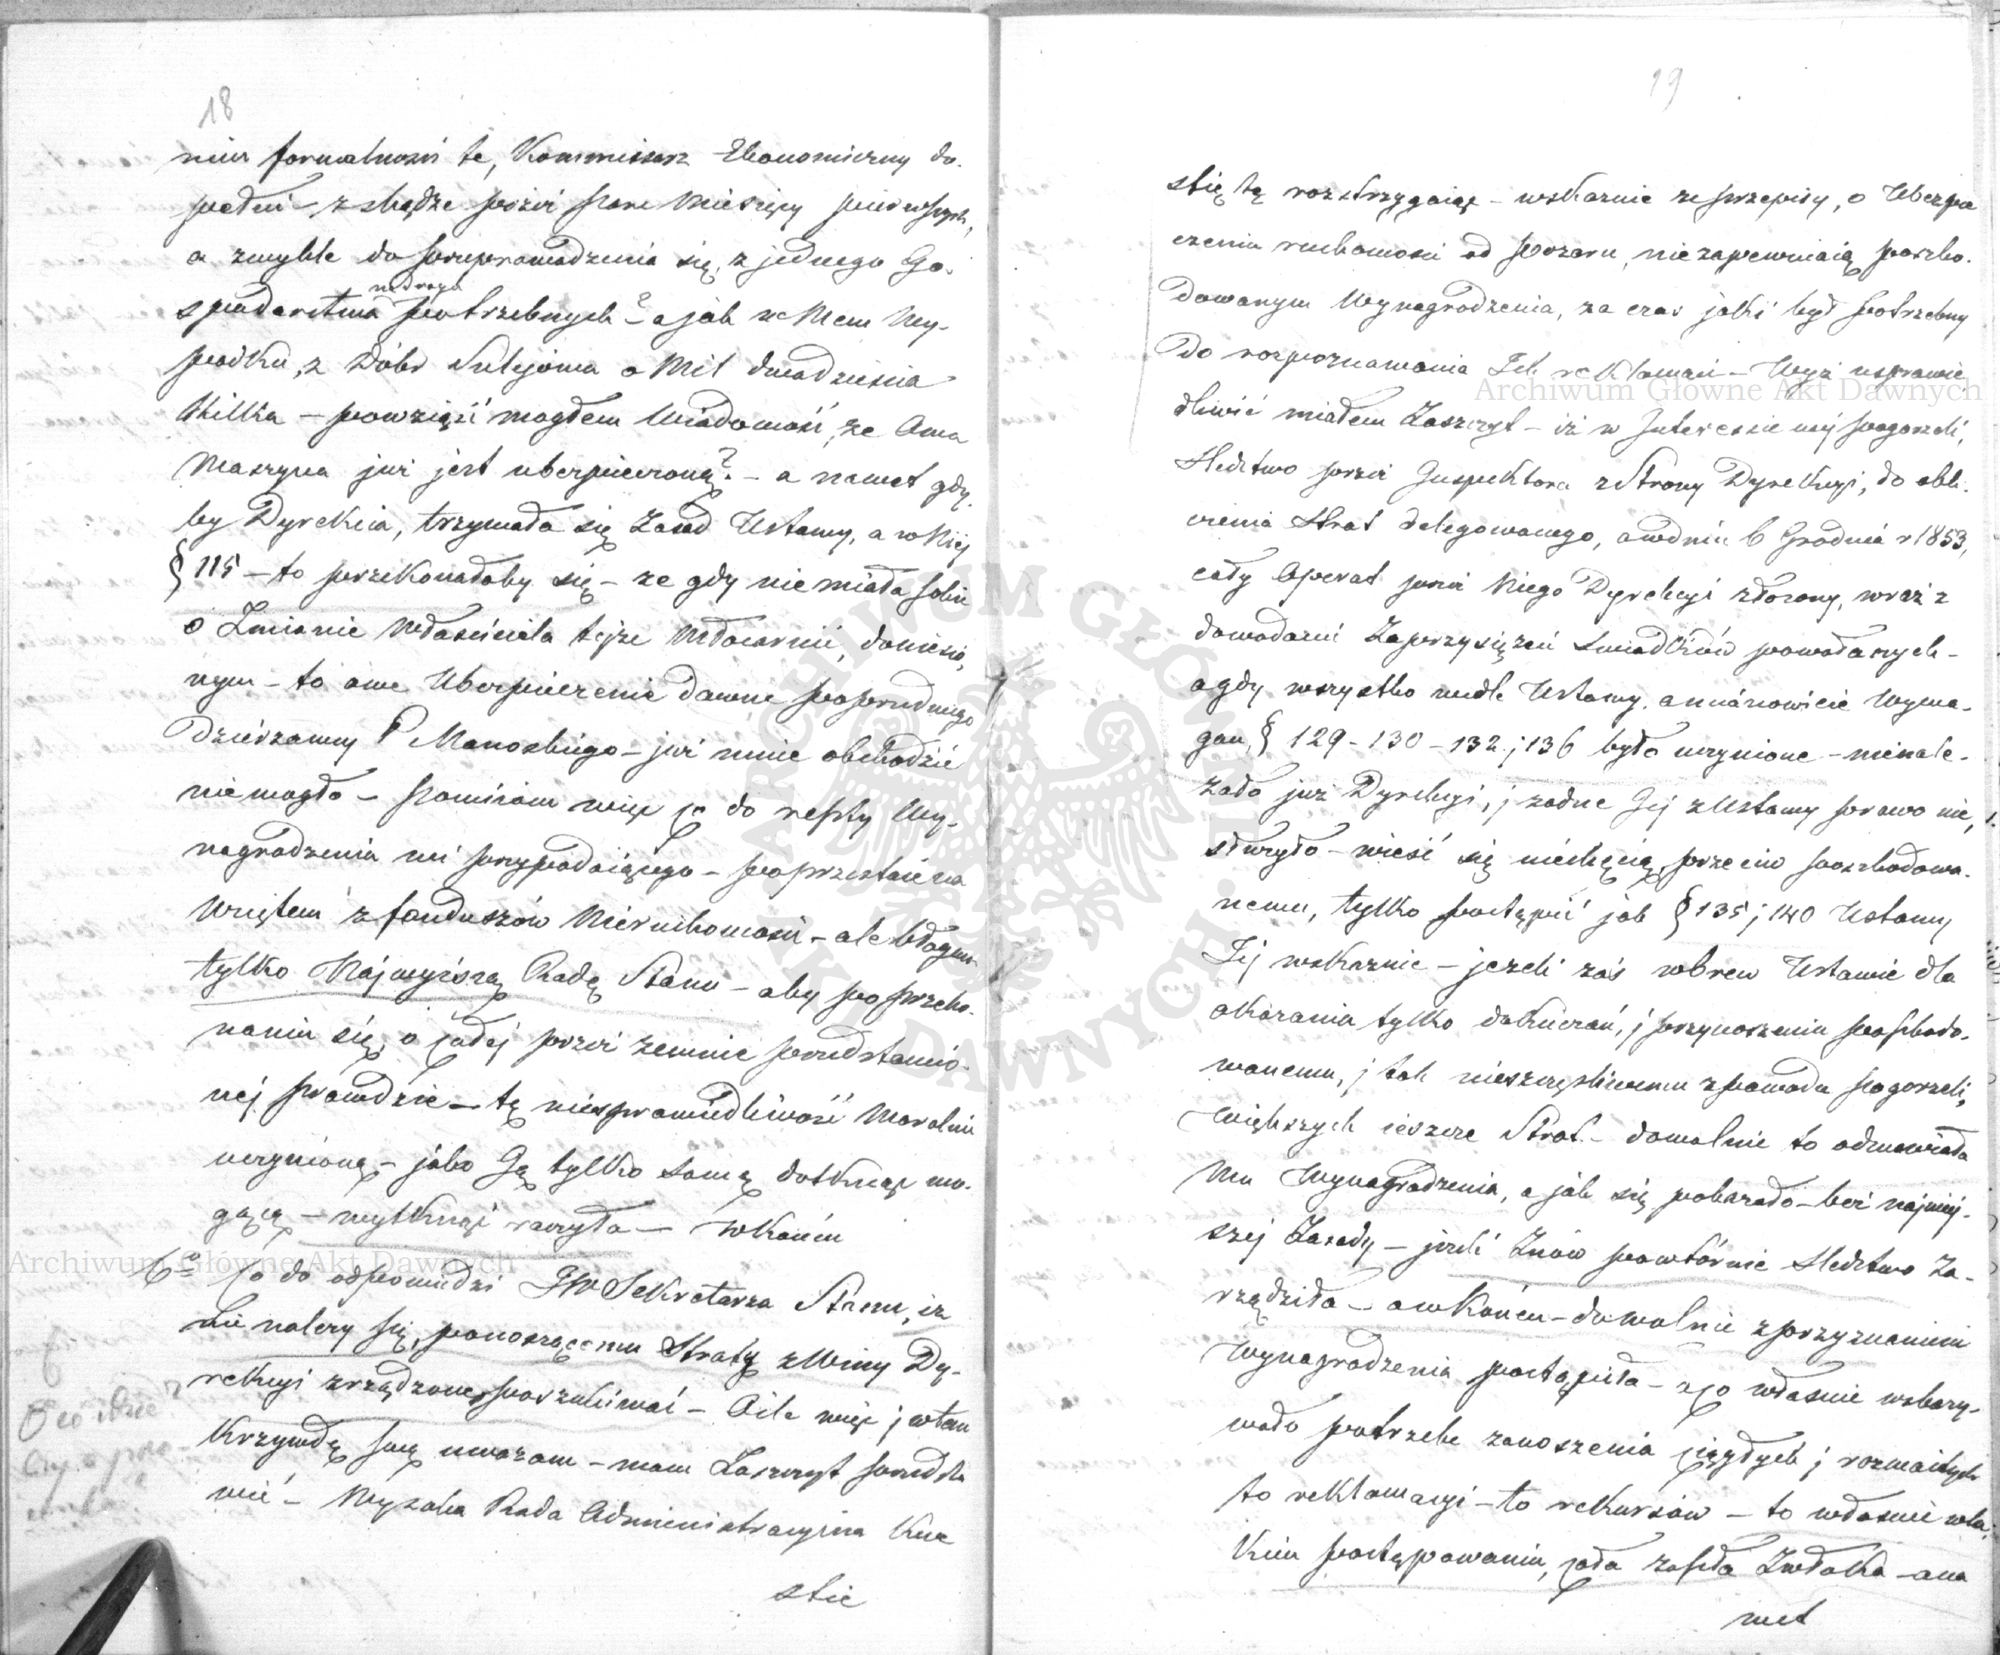 18
niem formalność te, Kommissarz Ekonomiczny do.
pełni – zkądże przez pare Miesięcy pierwszych,
a zwykle do przeprowadzenia się, z jednego Go.
spodarstwa na drugie potrzebnych? – a jak w Mem Wy-
padku, z Dóbr Sulejowa o Mil dwadzieścia
Kilka – powziąść mogłem Wiadomość, że Owa
Maszyna już jest ubezpieczoną? – a nawet gdy.
by Dyrekcia, trzymała się Zasad Ustawy, a w Niej
§ 115 – to przekonałaby się – że gdy nie miała sobie
o Zmianie Właściciela tejże Młocarnii, doniesio,
nym – to owe Ubezpieczenie dawne poprzedniego
Dzierżawcy P Manoskiego – już mnie obchodzić
nie mogło – pomijam więc co do reszty Wy-
nagrodzenia mi przypadaiącego – poprzestaie na
Wziętem z funduszów Nieruchomości – ale błagam
tylko Najwyższą Radę Stanu – aby po przeko.
naniu się, o całej przez zemnie przedstawio.
nej prawdzie – tę niesprawiedliwość Moralnie
uczynioną – jako Ją tylko samą dotknąć mo.
gącą – wytknąć raczyła – w Końcu
6o Co do odpowiedzi JW Sekretarza Stanu, iż
nie należy się, ponoszącemu Straty z Winy Dy-
rekcyi zrządzone, poszukiwać – O ile więc j w tem
Krzywdę swą uważam – mam Zaszczyt przedsta
wić – Wysoka Rada Administracyina Kwe
stie
O co idzie?
Czy o pro
19
stię tę rozstrzygaiąc – wskaznie że przepisy, o Ubezpie
czeniu ruchomości od Pożaru, nie zapewniaią poszko.
dowanym Wynagrodzenia, za czas jaki był potrzebny
do rozpoznawania Ich reklamacii – Wyż usprawie
dliwić miałem Zaszczyt – iż w Interessie mej pogorzeli,
Sledztwo przez Inspektora z Strony Dyrekcyi, do obli.
czenia Strat delegowanego, a w dniu 6 Grudnia r 1853,
cały Operat przez Niego Dyrekcyi złożony, wraz z
dowodami Zaprzysiężeń Swiadków powołanych –
a gdy wszystko wedle Ustawy, a mianowicie Wyma-
gań § 129 – 130 – 132. j 136 było uczynione – nienale-
żało już Dyrekcyi, j żadne Jej z Ustawy prawo nie,
służyło – wieść się niechęcią, przeciw poszkodowa.
nemu, tylko postąpić jak § 135 j 140 Ustawy
Jej wskaznie – jeżeli zaś wbrew Ustawie dla
okazania tylko dokuczań, j przynoszenia poszkodo.
wanemu, j tak nieszczęśliwemu z powodu pogorzeli,
Większych ieszcze Strat – dowolnie to odmawiała
Mu Wynagrodzenia, a jak się pokazało – bez najmniej.
szej Zasady – jeżeli Znów powtórnie Sledztwo Za-
rządziła – a w Końcu – dowolnie z przyznaniem
Wynagrodzenia postąpiła – z co właśnie wskazy-
wało potrzebę zanoszenia ciągłych j rozmaitych
to reklamacyi – to rekursów – to właśnie w ta,
kim postępowaniu, cała zaszła Zwłoka – a na
wet